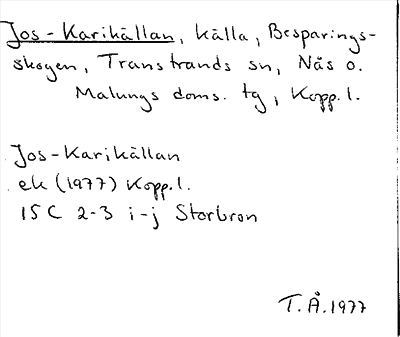 Jos-Karikällan, källa, Besparings-
skogen, Transtrands sn, Nås o.
Malungs doms. tg, Kopp.l.
Jos-Karikällan
ek (1977) Kopp.l.
15C 2-3 i-j Storbron
T.Å.1977